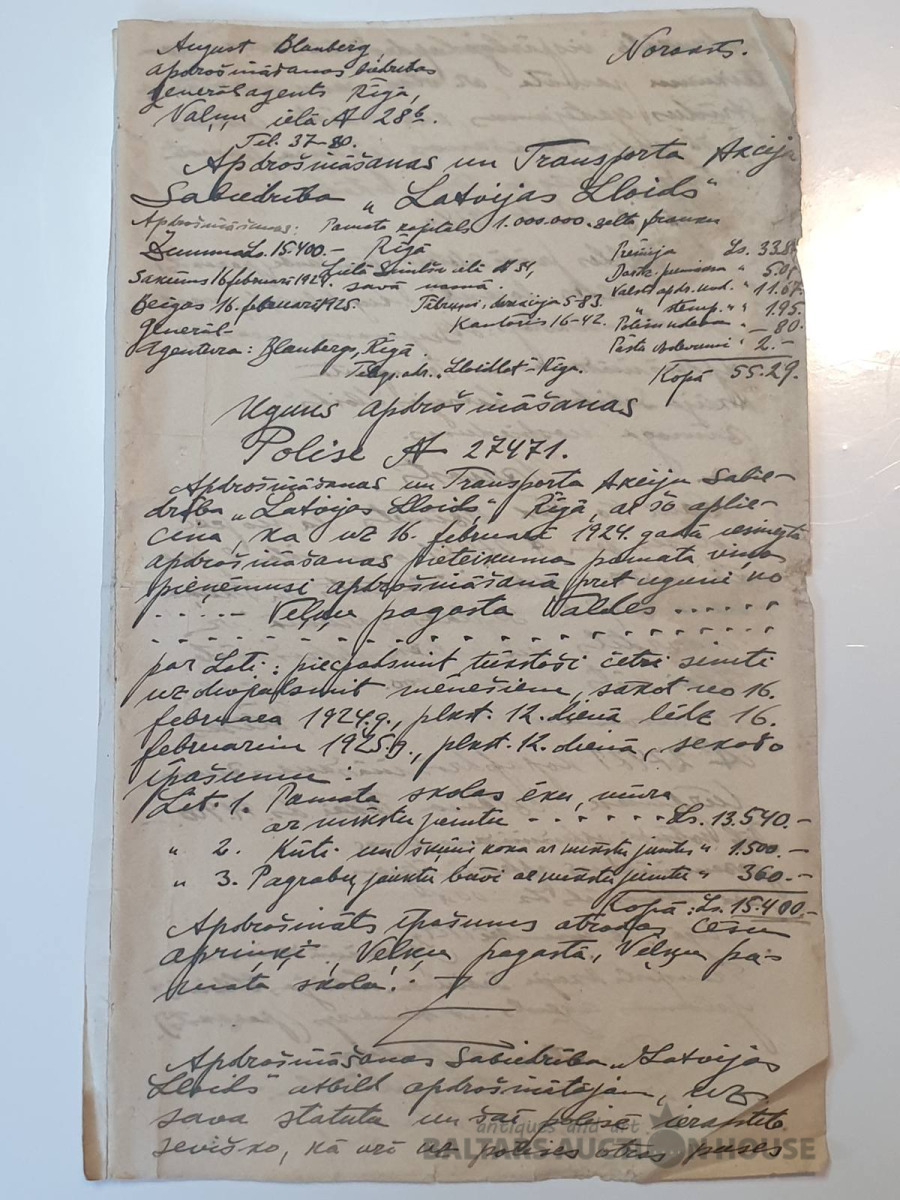 August Blauberg,
apdrošināšanas biedrības
generālagents Rīgā,
Vaļņu ielā № 28b.
Tel. 37-80.
Noraksts.
Apdrošināšanas un Transporta Akciju
Sabiedrība „Latvijas Lloids"
Apdrošināšanas: Pamata kapitals 1.000.000 zelta franku
Summa Ls. 15.400.- Rīgā
Sākums 16 februarī 1924. Lielā Smilšu ielā № 31,
savā namā.
Beigas 16. februarī 1925. Tālruņi: direkcija 5-83.
Kantoris 16-42.
Ģenerāl-
Agentura: Blaubergs, Rīgā.
Telegr. adr. „Lloidlat" - Rīga.
Prēmija Ls. 33.8
5.0
Valsts apdr. nod. " 11.67
" stemp. " " 1.95.
Polises nodeva " -80.
Pasta izdevumi " 2.-
Kopā 55.29.
Uguns apdrošināšanas
Polise № 27471.
Apdrošināšanas un Transporta Akciju Sabie-
drība „Latvijas Lloids", Rīgā, ar šo aplie-
cina, ka uz 16. februarī 1924. gadā iesniegtā
apdrošināšanas pieteikuma pamata viņa
pieņēmusi apdrošināšanā pret uguni no
..... Veļķu pagasta Valdes ......
par Lati: piecpadsmit tūkstoši četri simti
uz divpadsmit mēnešiem, sākot no 16.
februara 1924.g., plkst. 12. dienā līdz 16.
februarim 1925.g., plkst. 12. dienā, sekošo
īpašumu:
Lit. 1. Pamata skolas ēku, mūra
ar mīkstu jumtu - - - - - - Ls. 13.540.-
" 2. Kūti un šķūni koka ar mīkstu jumtu " 1.500.-
" 3. Pagrabu, jauktu būvi ar mīkstu jumtu " 360.-
Kopā: Ls. 15.400.-
Apdrošināts īpašums atrodas Cēsu
apriņķī, Veļķu pagastā, „Veļķu pa-
mata skola".
Apdrošināšanas Sabiedrība „Latvijas
Lloids" atbild apdrošinātājam, uz
sava statuta un šai polisē ierakstīto
sevišķo, kā arī uz polises otras puses
antiques and art
BALTARS AUCTION HOUSE